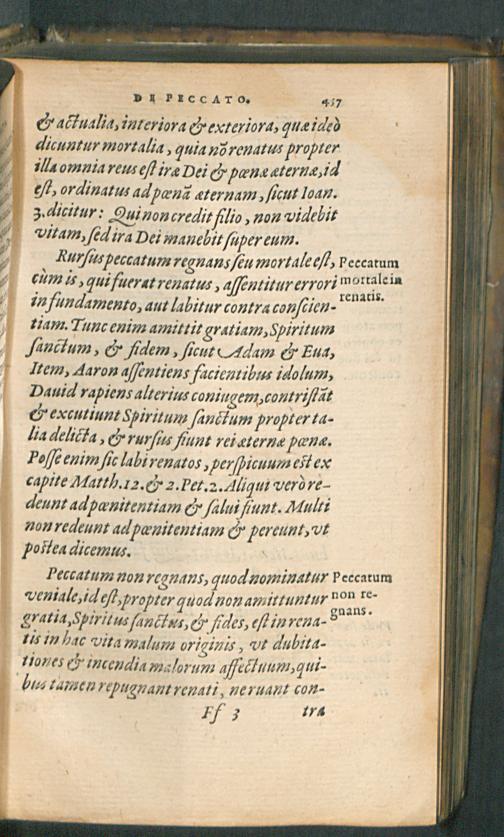 DE PECCATO. 457
& actualia, interiora & exteriora, quæ ideò
dicuntur mortalia, quia nõ renatus propter
illa omnia reus est iræ Dei & pœnæ æternæ, id
est, ordinatus ad pœnã æternam, sicut Ioan.
3. dicitur: Qui non credit filio, non videbit
vitam, sed ira Dei manebit super eum.
Rursus peccatum regnans seu mortale est,
cùm is, qui fuerat renatus, assentitur errori
in fundamento, aut labitur contra conscien-
tiam. Tunc enim amittit gratiam, Spiritum
sanctum, & fidem, sicut Adam & Eua,
Item, Aaron assentiens facientibus idolum,
Dauid rapiens alterius coniugem, contristãt
& excutiunt Spiritum sanctum propter ta-
lia delicta, & rursus fiunt rei æternæ pœnæ.
Posse enim sic labi renatos, perspicuum est ex
capite Matth. 12. & 2. Pet. 2. Aliqui verò re-
deunt ad pœnitentiam & salui fiunt. Multi
non redeunt ad pœnitentiam & pereunt, vt
postea dicemus.
Peccatum non regnans, quod nominatur
veniale, id est, propter quod non amittuntur
gratia, Spiritus sanctus, & fides, est in rena-
tis in hac vita malum originis, vt dubita-
tiones & incendia malorum affectuum, qui-
bus tamen repugnant renati, ne ruant con-
Ff 3 tra
Peccatum
mortale in
renatis.
Peccatum
non re-
gnans.